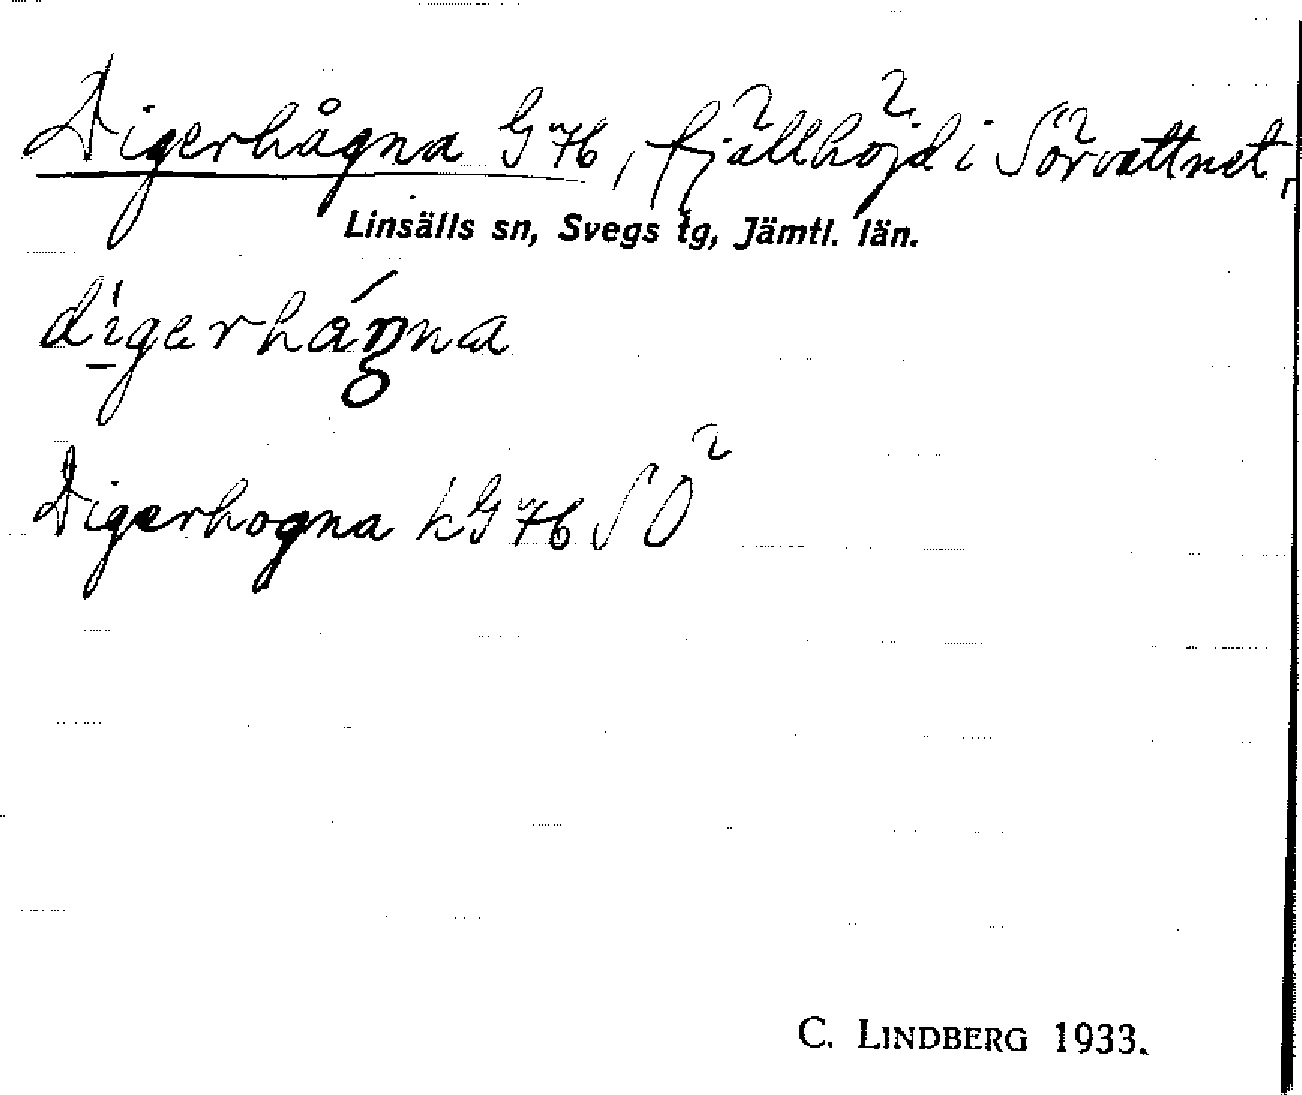 Digerhågna G76, fjällhöjd i Sörvattnet,
Linsälls sn, Svegs tg, Jämtl. län.
digerhágna
Digerhogna kG76 SÖ
C. LINDBERG 1933.